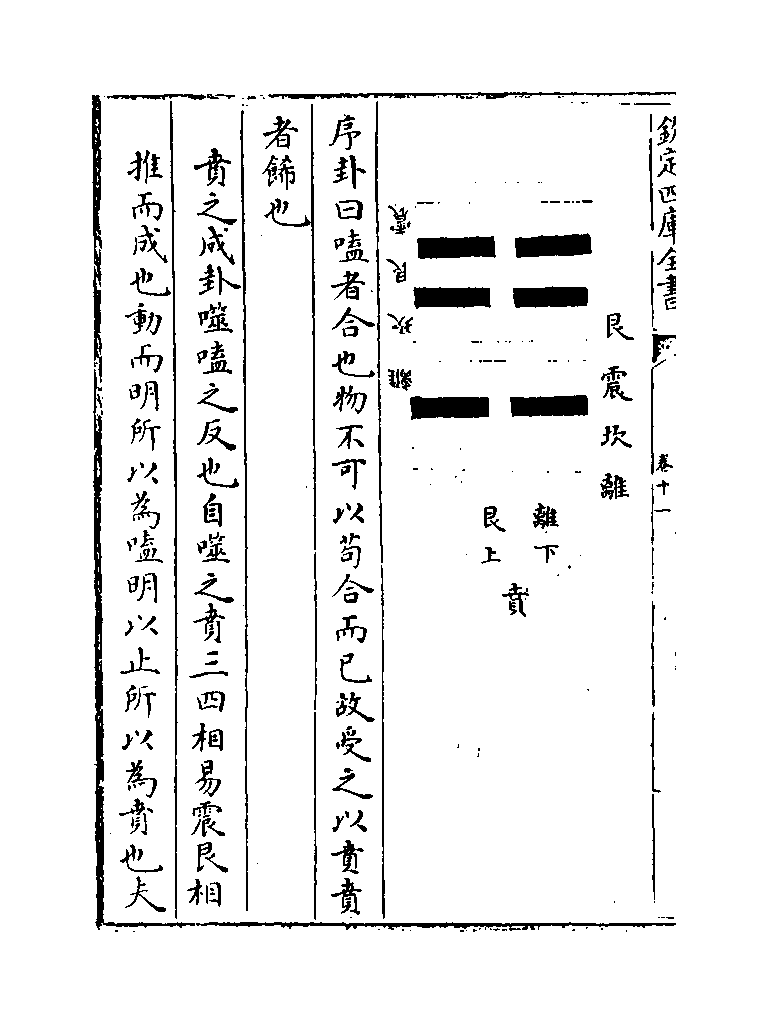 欽定四庫全書
卷十一
艮震坎離
震艮坎離
離下
艮上
賁
序卦曰嗑者合也物不可以苟合而已故受之以賁賁
者餙也
賁之成卦噬嗑之反也自噬之賁三四相易震艮相
推而成也動而明所以為嗑明以止所以為賁也夫